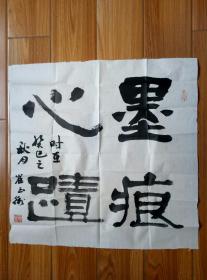 墨痕
心蹟
时在
癸巳之
秋月